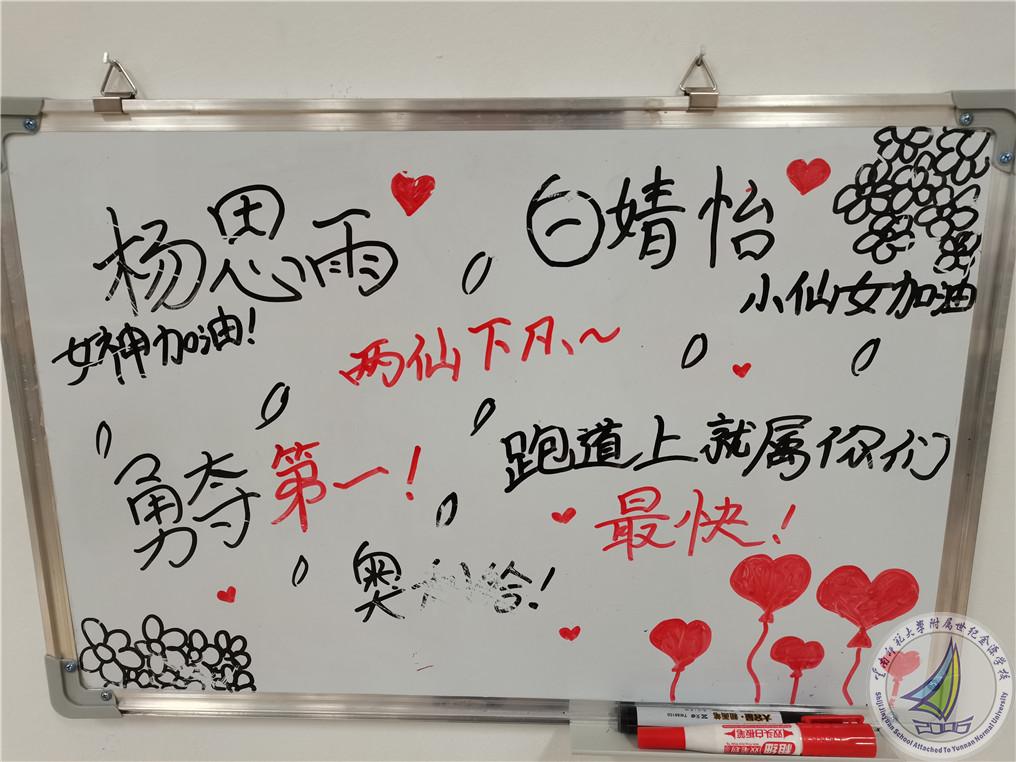 杨思雨
白婧怡
女神加油！
小仙女加油
两仙下凡~
勇夺第一！
跑道上就属你们
最快！
奥
大容量·粗头笔
双头白板笔
雲南師範大學附属世纪金源学校
Shiji Jinyuan School Attached To Yunnan Normal University
2006